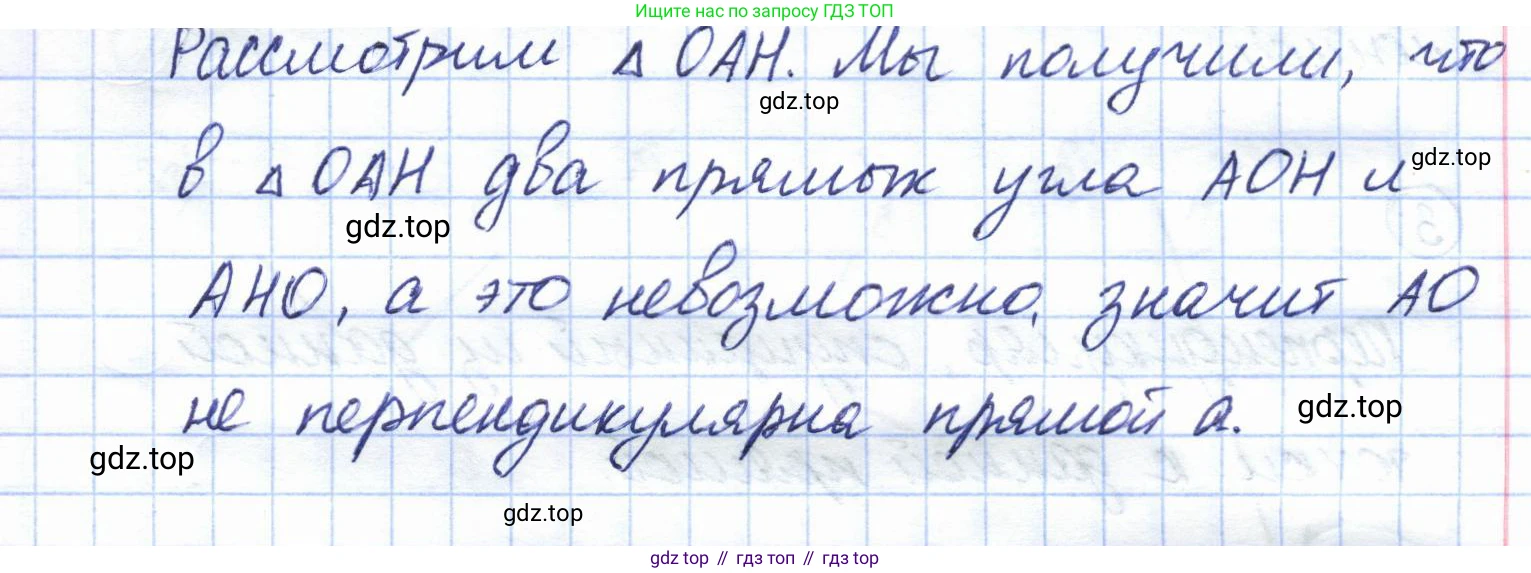 Ищите нас по запросу ГДЗ ТОП
Рассмотрим △ OAH. Мы получили, что
gdz.top
в △ OAH два прямых угла AOH и
gdz.top
gdz.top
AHO, а это невозможно, значит AO
не перпендикулярна прямой a.
gdz.top
gdz.top
gdz.top
gdz top // гдз топ // gdz top